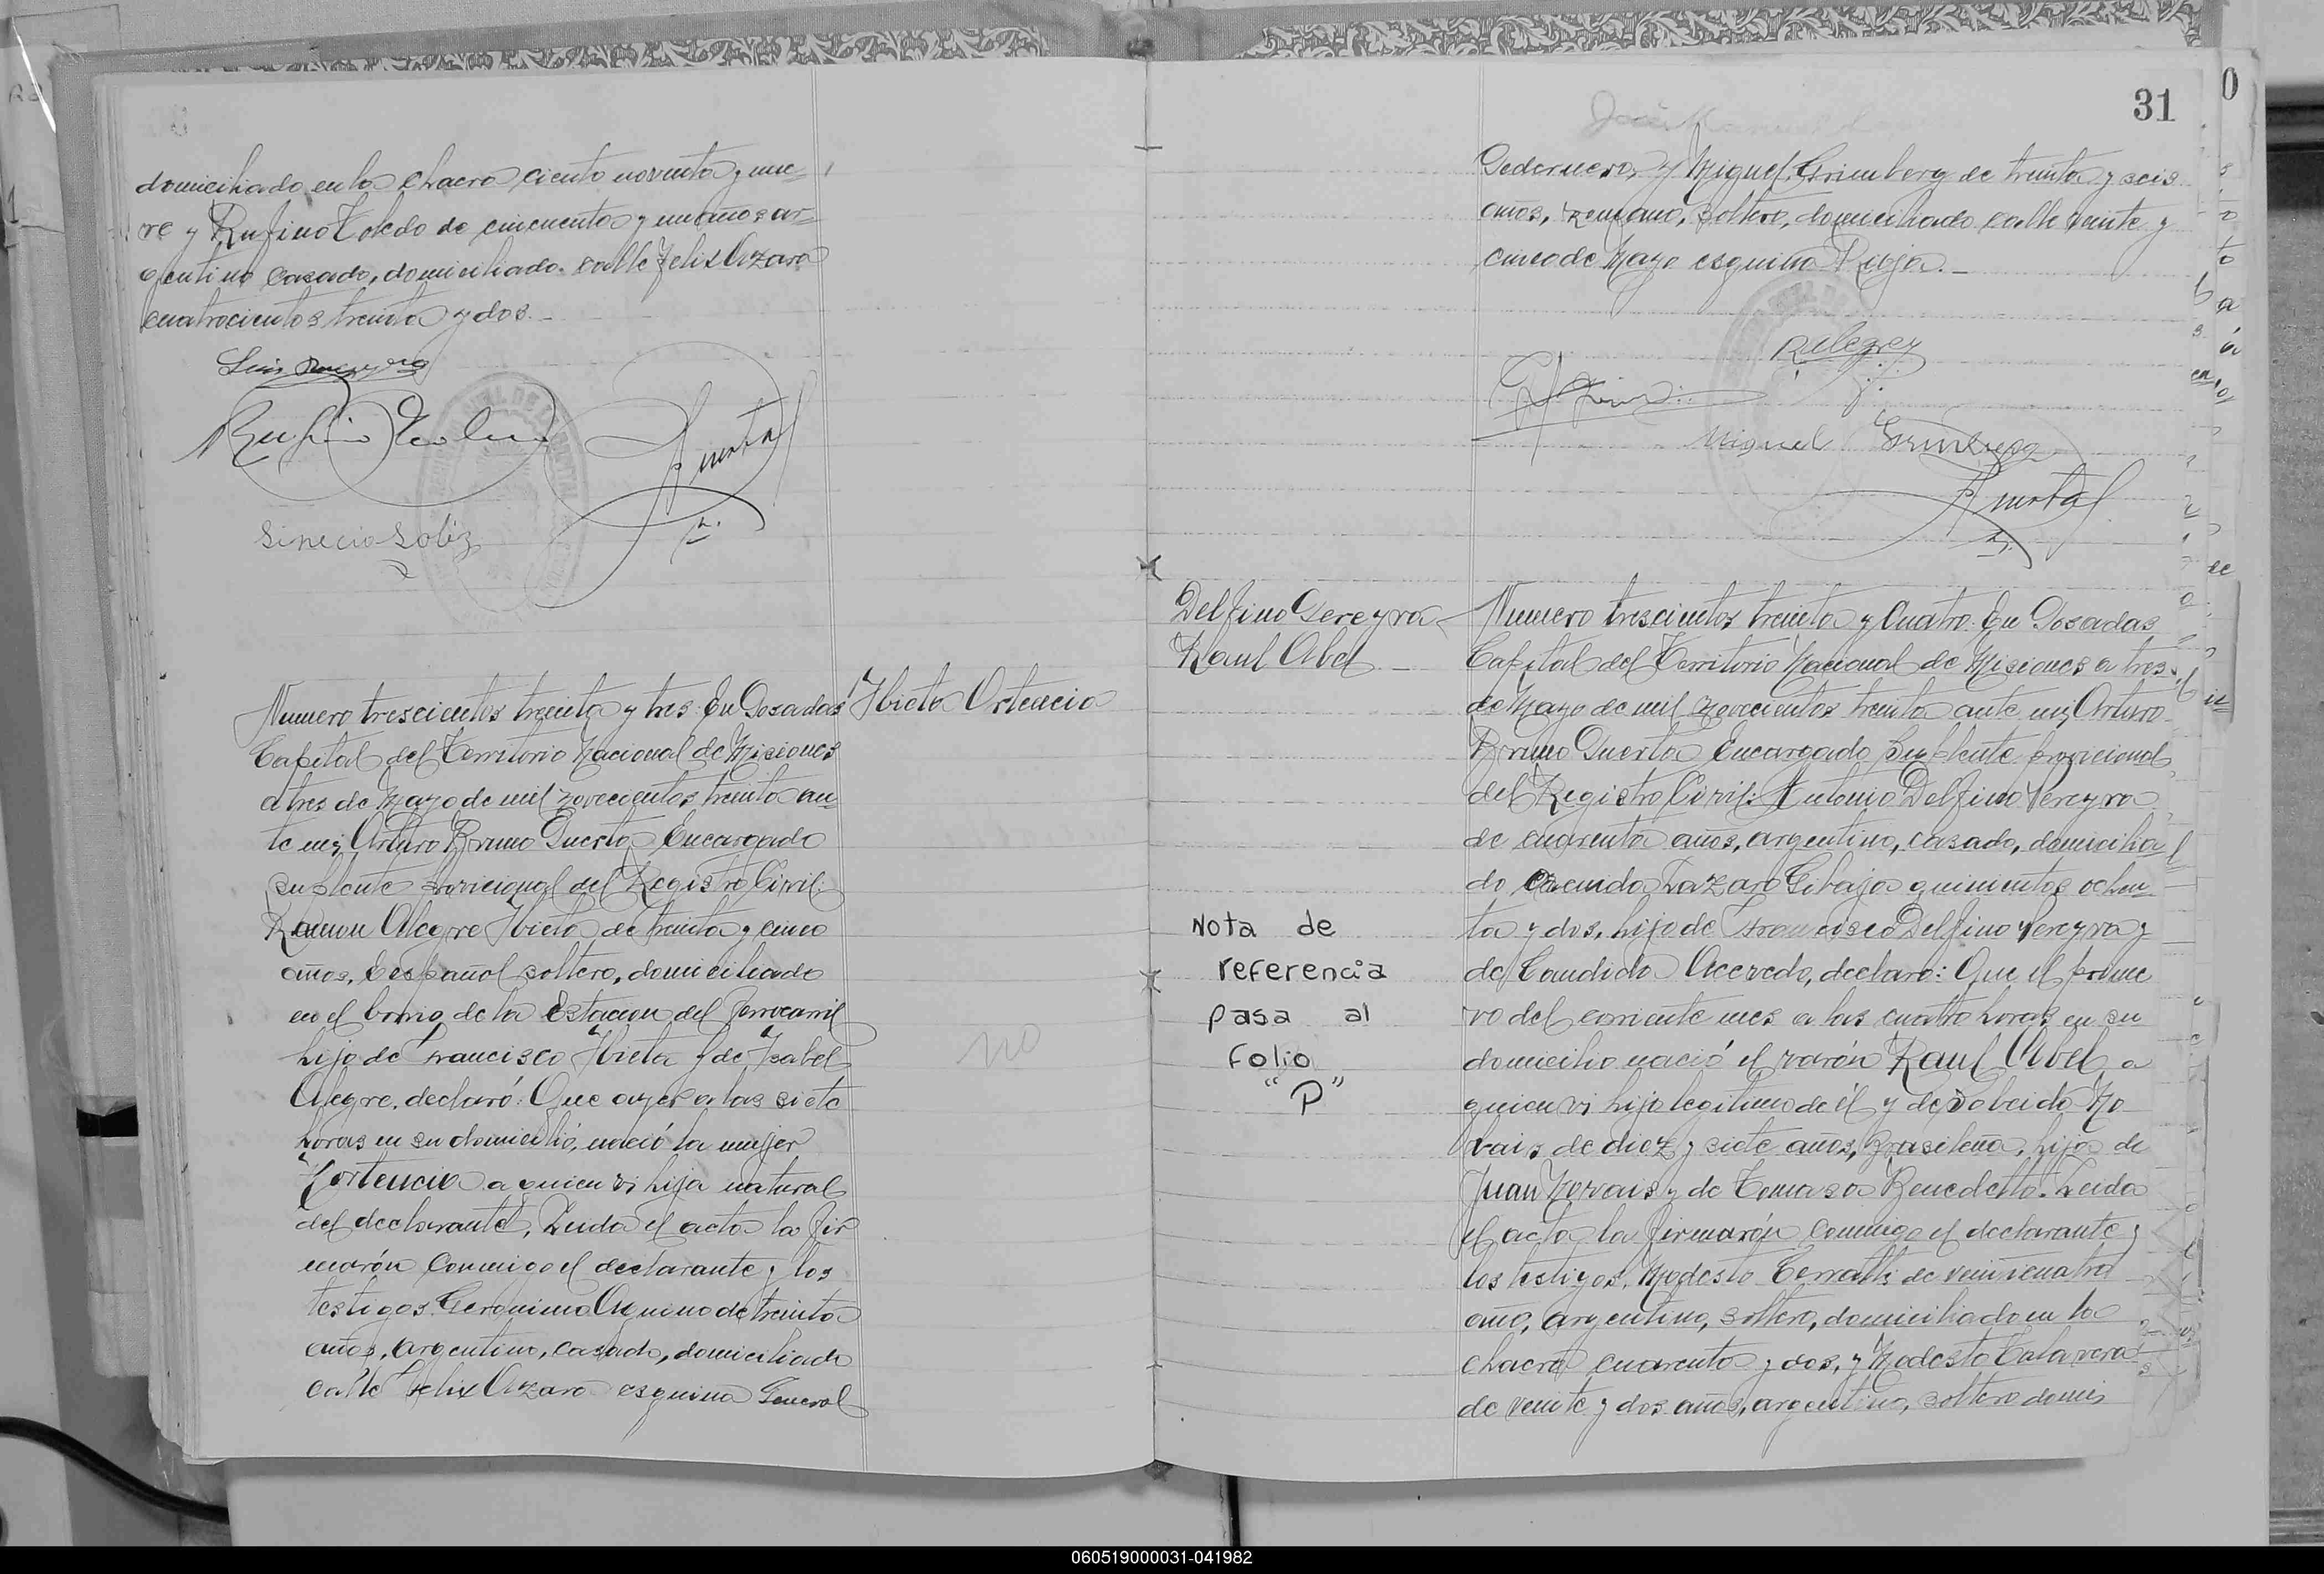 domiciliado en la chacra ciento noventa y nue-
ve y Rufino Toledo de cincuenta y un años ar-
gentino casado, domiciliado calle Felix Azara
cuatrocientos treinta y dos.
Rufino Toledo
Sinecio Soliz
Numero trescientos treinta y tres En Posadas
Capital del Territorio Nacional de Misiones
a tres de Mayo de mil novecientos treinta an-
te mi, Arturo Bruno Puerta Encargado
suplente provicional del Registro Civil:
Ramon Alegre Ibieta de treinta y cinco
años, Español soltero, domiciliado
en el barrio de la Estacion del ferrocarril
hijo de Francisco Ibieta y de Isabel
Alegre, declaró: Que ayer a las siete
horas en su domicilió, nació la mujer
Hortencia a quien vi hija natural
del declarante, Leida el acta la fir
marón conmigo el declarante y los
testigos Geronimo Aquino de treinta
años, argentino, casado, domiciliado
calle Felix Azara esquina General
Ibieta Ortencia
no
31
Pedernera, y Miguel Grimberg de treinta y seis
años, rumano, soltero, domiciliado calle veinte y
cinco de Mayo esquina Rioja.
RAlegre
Miguel Grimberg
Delfino Pereyra
Raul Abel
Nota de
referencia
pasa al
folio
"P"
Numero trescientos treinta y Cuatro. En Posadas
Capital del Territorio Nacional de Misiones a tres
de Mayo de mil novecientos treinta ante mi, Arturo
Bruno Puerta Encargado Suplente provicional
del Registro Civil: Antonio Delfino Pereyra
de cuarenta años, argentino, casado, domicilia
do Lazaro Gibaja quinientos ochen-
ta y dos, hijo de Francisco Delfino Pereyra y
de Candida Acevedo, declaro: Que el prime
ro del corriente mes a las cuatro horas en su
domicilio nació el varón Raul Abel a
quien vi hijo legitimo de él y de
de diez y siete años, Brasileña, hija de
Juan y de Tomasa Benedetto. Leida
el acta la firmarón conmigo el declarante y
los testigos, Modesto de veinticuatro
año, argentino, soltero, domiciliado en la
chacra cuarenta y dos, y Modesto Talavera
de veinte y dos años, argentino, soltero domi
060519000031-041982